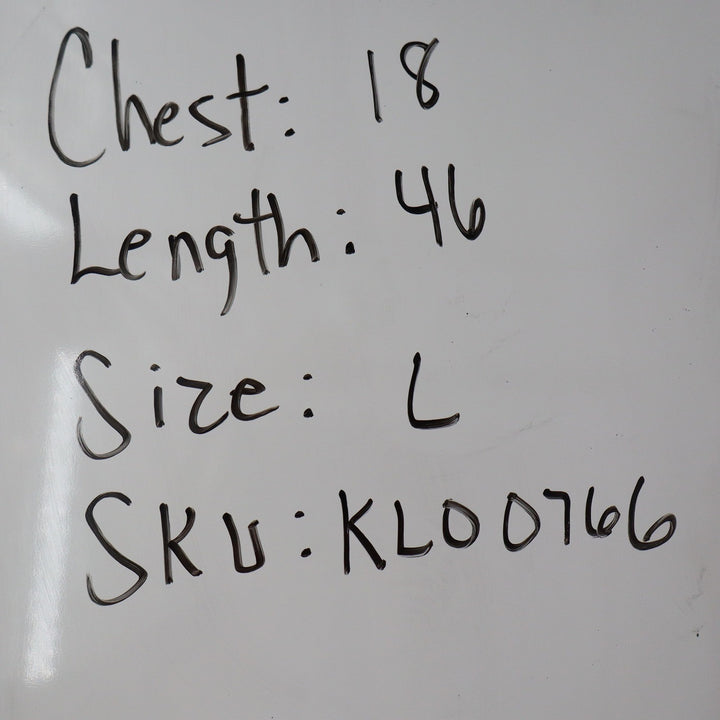 Chest: 18
Length: 46
Size: L
SKU: KL00766